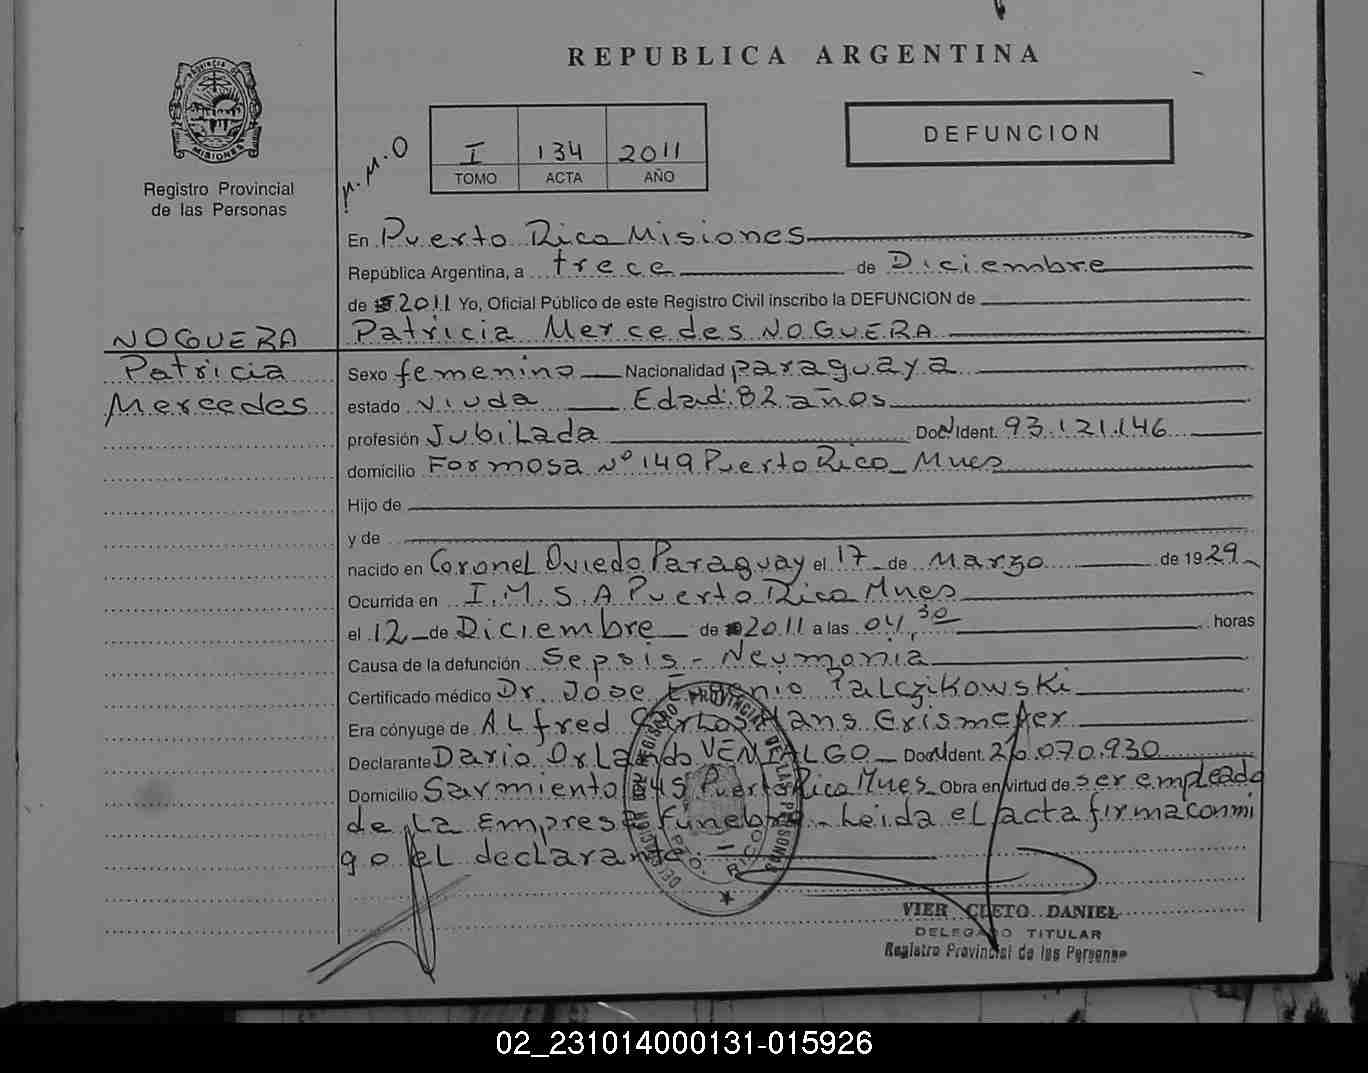 REPUBLICA ARGENTINA
PROVINCIA D
MISIONES
Registro Provincial
de las Personas
M.M.O
I 134 2011
TOMO ACTA AÑO
DEFUNCION
En Puerto Rico Misiones
República Argentina, a trece de Diciembre
de 2011 Yo, Oficial Público de este Registro Civil inscribo la DEFUNCION de
NOGUERA
Patricia
Mercedes
Patricia Mercedes NOGUERA
Sexo femenino Nacionalidad paraguaya
estado viuda Edad: 82 años
profesión Jubilada Doc N Ident. 93.121.146
domicilio Formosa Nº 149 Puerto Rico Mnes
Hijo de
y de
nacido en Coronel Oviedo Paraguay el 17 de Marzo de 1929
Ocurrida en I.M.S.A Puerto Rico Mnes
el 12 de Diciembre de 2011 a las 04,30 horas
Causa de la defunción Sepsis - Neumonia
Certificado médico Dr. Jose Eugenio Palczikowski
Era cónyuge de Alfred Carlos Hans Grismeyer
Declarante Dario Orlando VENIALGO Doc N Ident. 26.070.930
Domicilio Sarmiento Puerto Rico Mnes Obra en virtud de ser empleado
de la Empresa Funebre - Leida el acta firma conmi
go el declarante
REGISTRO PROVINCIAL DE LAS PERSONAS
PTO. RICO
VIER CLETO DANIEL
DELEGADO TITULAR
Registro Provincial de las Personas
02_231014000131-015926